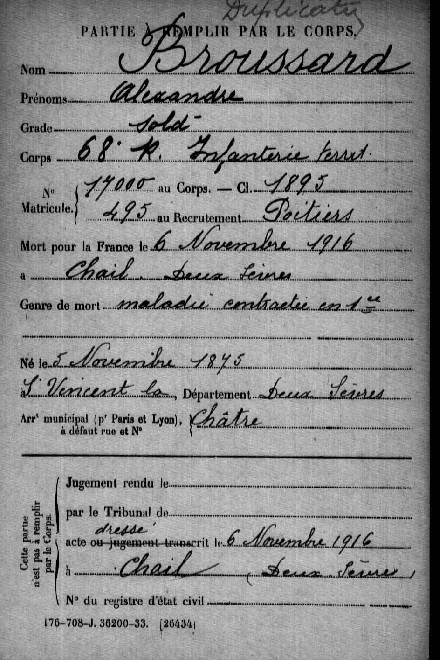 Duplicata
PARTIE À REMPLIR PAR LE CORPS.
Nom Broussard
Prénoms Alexandre
Grade Soldt
Corps 68e R. Infanterie Territ.
Nº 17000 au Corps. — Cl. 1895
Matricule. 495 au Recrutement Poitiers
Mort pour la France le 6 Novembre 1916
à Chail. Deux Sèvres
Genre de mort maladie contractée en 1re
Né le 5 Novembre 1875
à St Vincent la, Département Deux Sèvres
Arrt municipal (pr Paris et Lyon), Châtre
à défaut rue et Nº
Cette partie
n'est pas à remplir
par le Corps.
Jugement rendu le
par le Tribunal de
dressé
acte ou jugement transcrit le 6 Novembre 1916
à Chail (Deux Sèvres)
Nº du registre d'état civil
176-708-J. 36200-33. (26434)